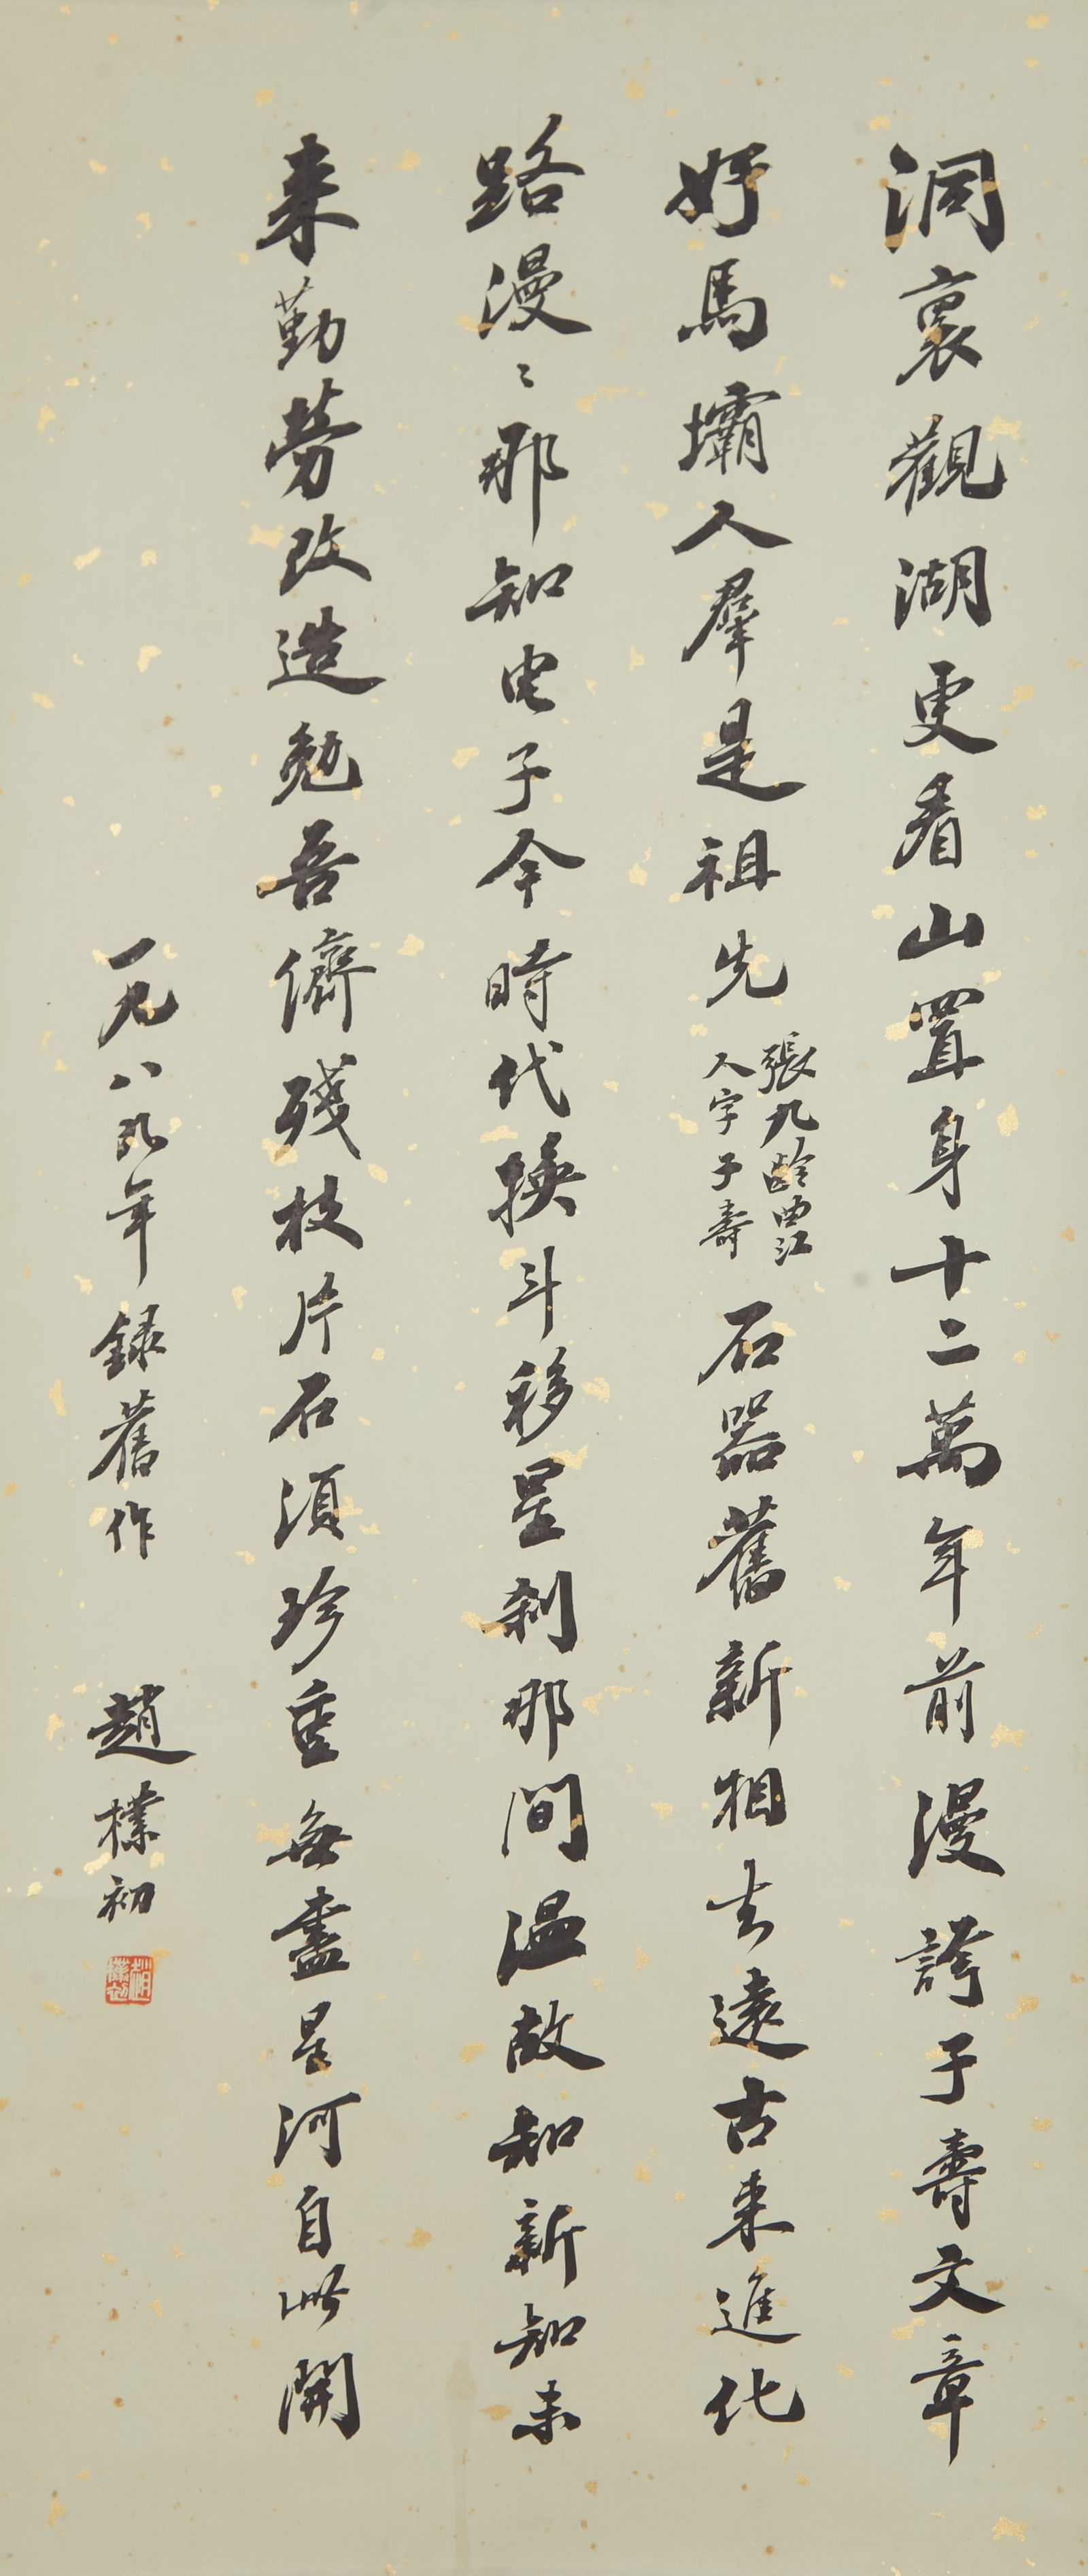 洞裏觀湖更看山置身十二萬年前漫誇子壽文章
好馬壩人羣是祖先
張九齡曲江
人字子壽
石器舊新相去遠古來進化
路漫〻那知电子今時代換斗移星刹那間温故知新知未
来勤劳改造勉吾儕殘枝片石須珍重無盡星河自此開
一九八九年錄舊作 趙樸初
趙樸初